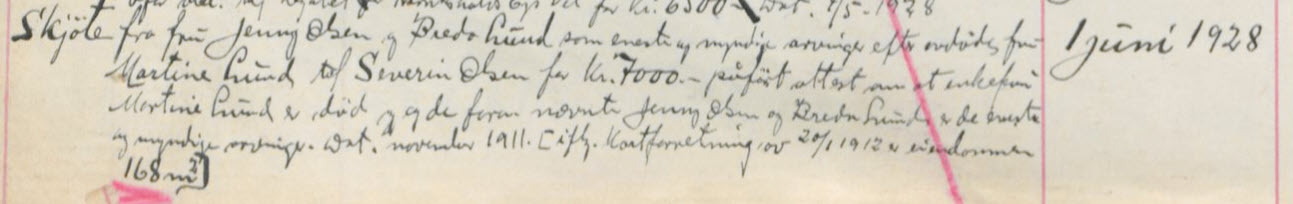 for Kr. 6500.- Dat. 7/5-1928
Skjöte fra fru Jenny Olsen og Breda Lund som eneste og myndige arvinger efter avdöde fru 1 juni 1928
Martine Lund til Severin Olsen for Kr. 7000.- påfört attest om at enkefru
Martine Lund er död og de foran nævnte Jenny Olsen og Breda Lund er de eneste
og myndige arvinger. Dat. november 1911. [iflg. Kartforretning av 20/1 1912 er eiendommen
168 m²]